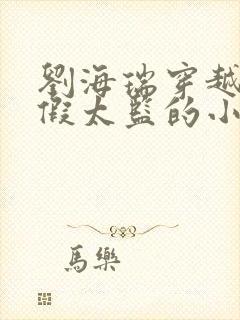 劉海瑞穿越
假太監的小
馬樂